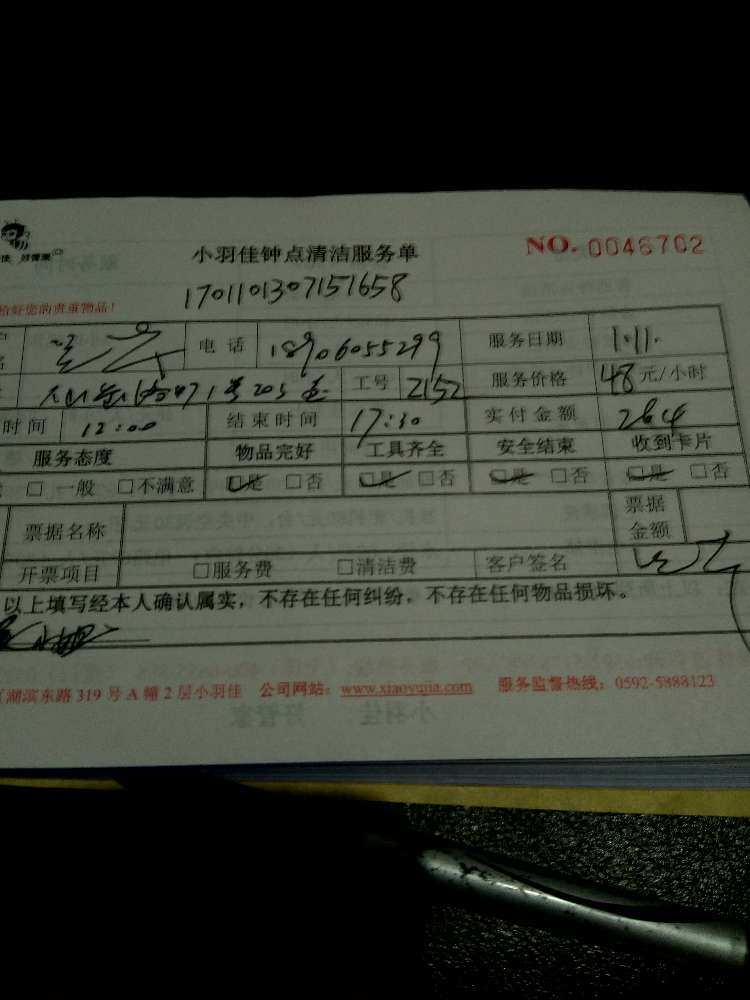 小羽佳钟点清洁服务单 NO. 0046702
1701101307151658
给好您的贵重物品!
电话 18906055299 服务日期 1.11.
工号 2152 服务价格 48元/小时
时间 12:00 结束时间 17:30 实付金额 264
服务态度 物品完好 工具齐全 安全结束 收到卡片
□ 一般 □不满意 □是 □否 □是 □否 □是 □否 □是 □否
票据名称 票据金额
开票项目 □服务费 □清洁费 客户签名
以上填写经本人确认属实，不存在任何纠纷，不存在任何物品损坏。
湖滨东路 319 号 A 幢 2 层小羽佳 公司网站：www.xiaoyujia.com 服务监督热线：0592-5888123